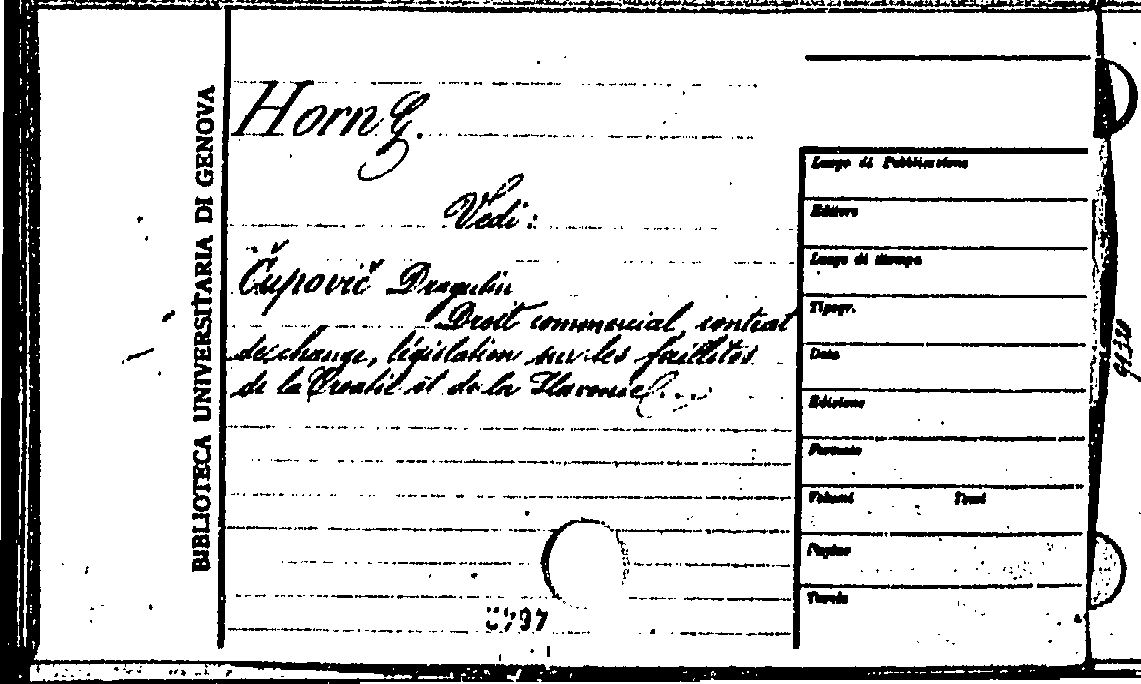 BIBLIOTECA UNIVERSITARIA DI GENOVA
Horn G.
Vedi:
Čupovič Dragutin
Droit commercial, contrat
de change, législation sur les faillites
de la Croatie et de la Slavonie (...)
Luogo di Pubblicazione
Editore
Luogo di stampa
Tipogr.
Data
Edizione
Formato
Volumi Tomi
Pagine
Tavole